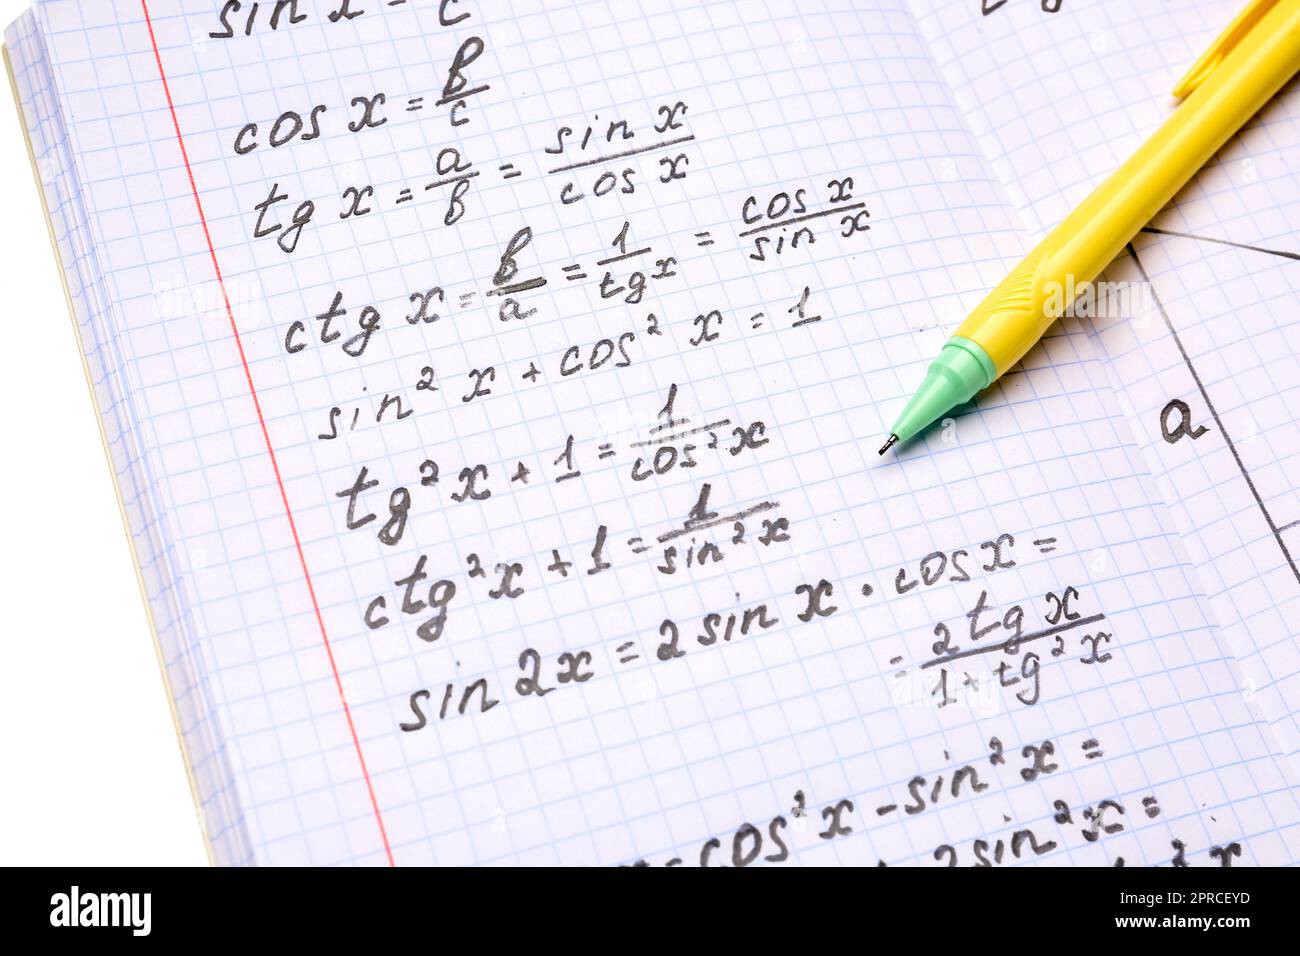 sin x = /c
cos x = b/c
tg x = a/b = sin x/cos x
ctg x = b/a = 1/tg x = cos x/sin x
sin² x + cos² x = 1
tg² x + 1 = 1/cos² x
ctg² x + 1 = 1/sin² x
sin 2x = 2 sin x · cos x =
= 2 tg x/1 + tg² x
= cos² x - sin² x =
2 sin² x =
a
alamy
Image ID: 2PRCEYD
www.alamy.com